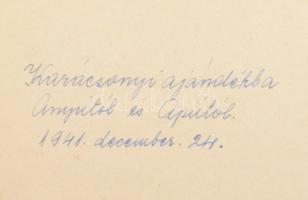 Karácsonyi ajándékba
Anyitól és Aputól.
1941. december. 24.